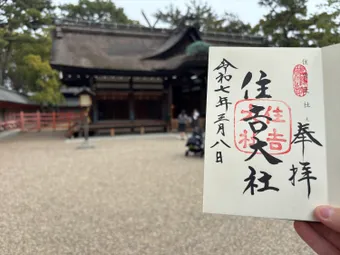 奉拝
住吉大社
住吉
大社
令和七年三月八日